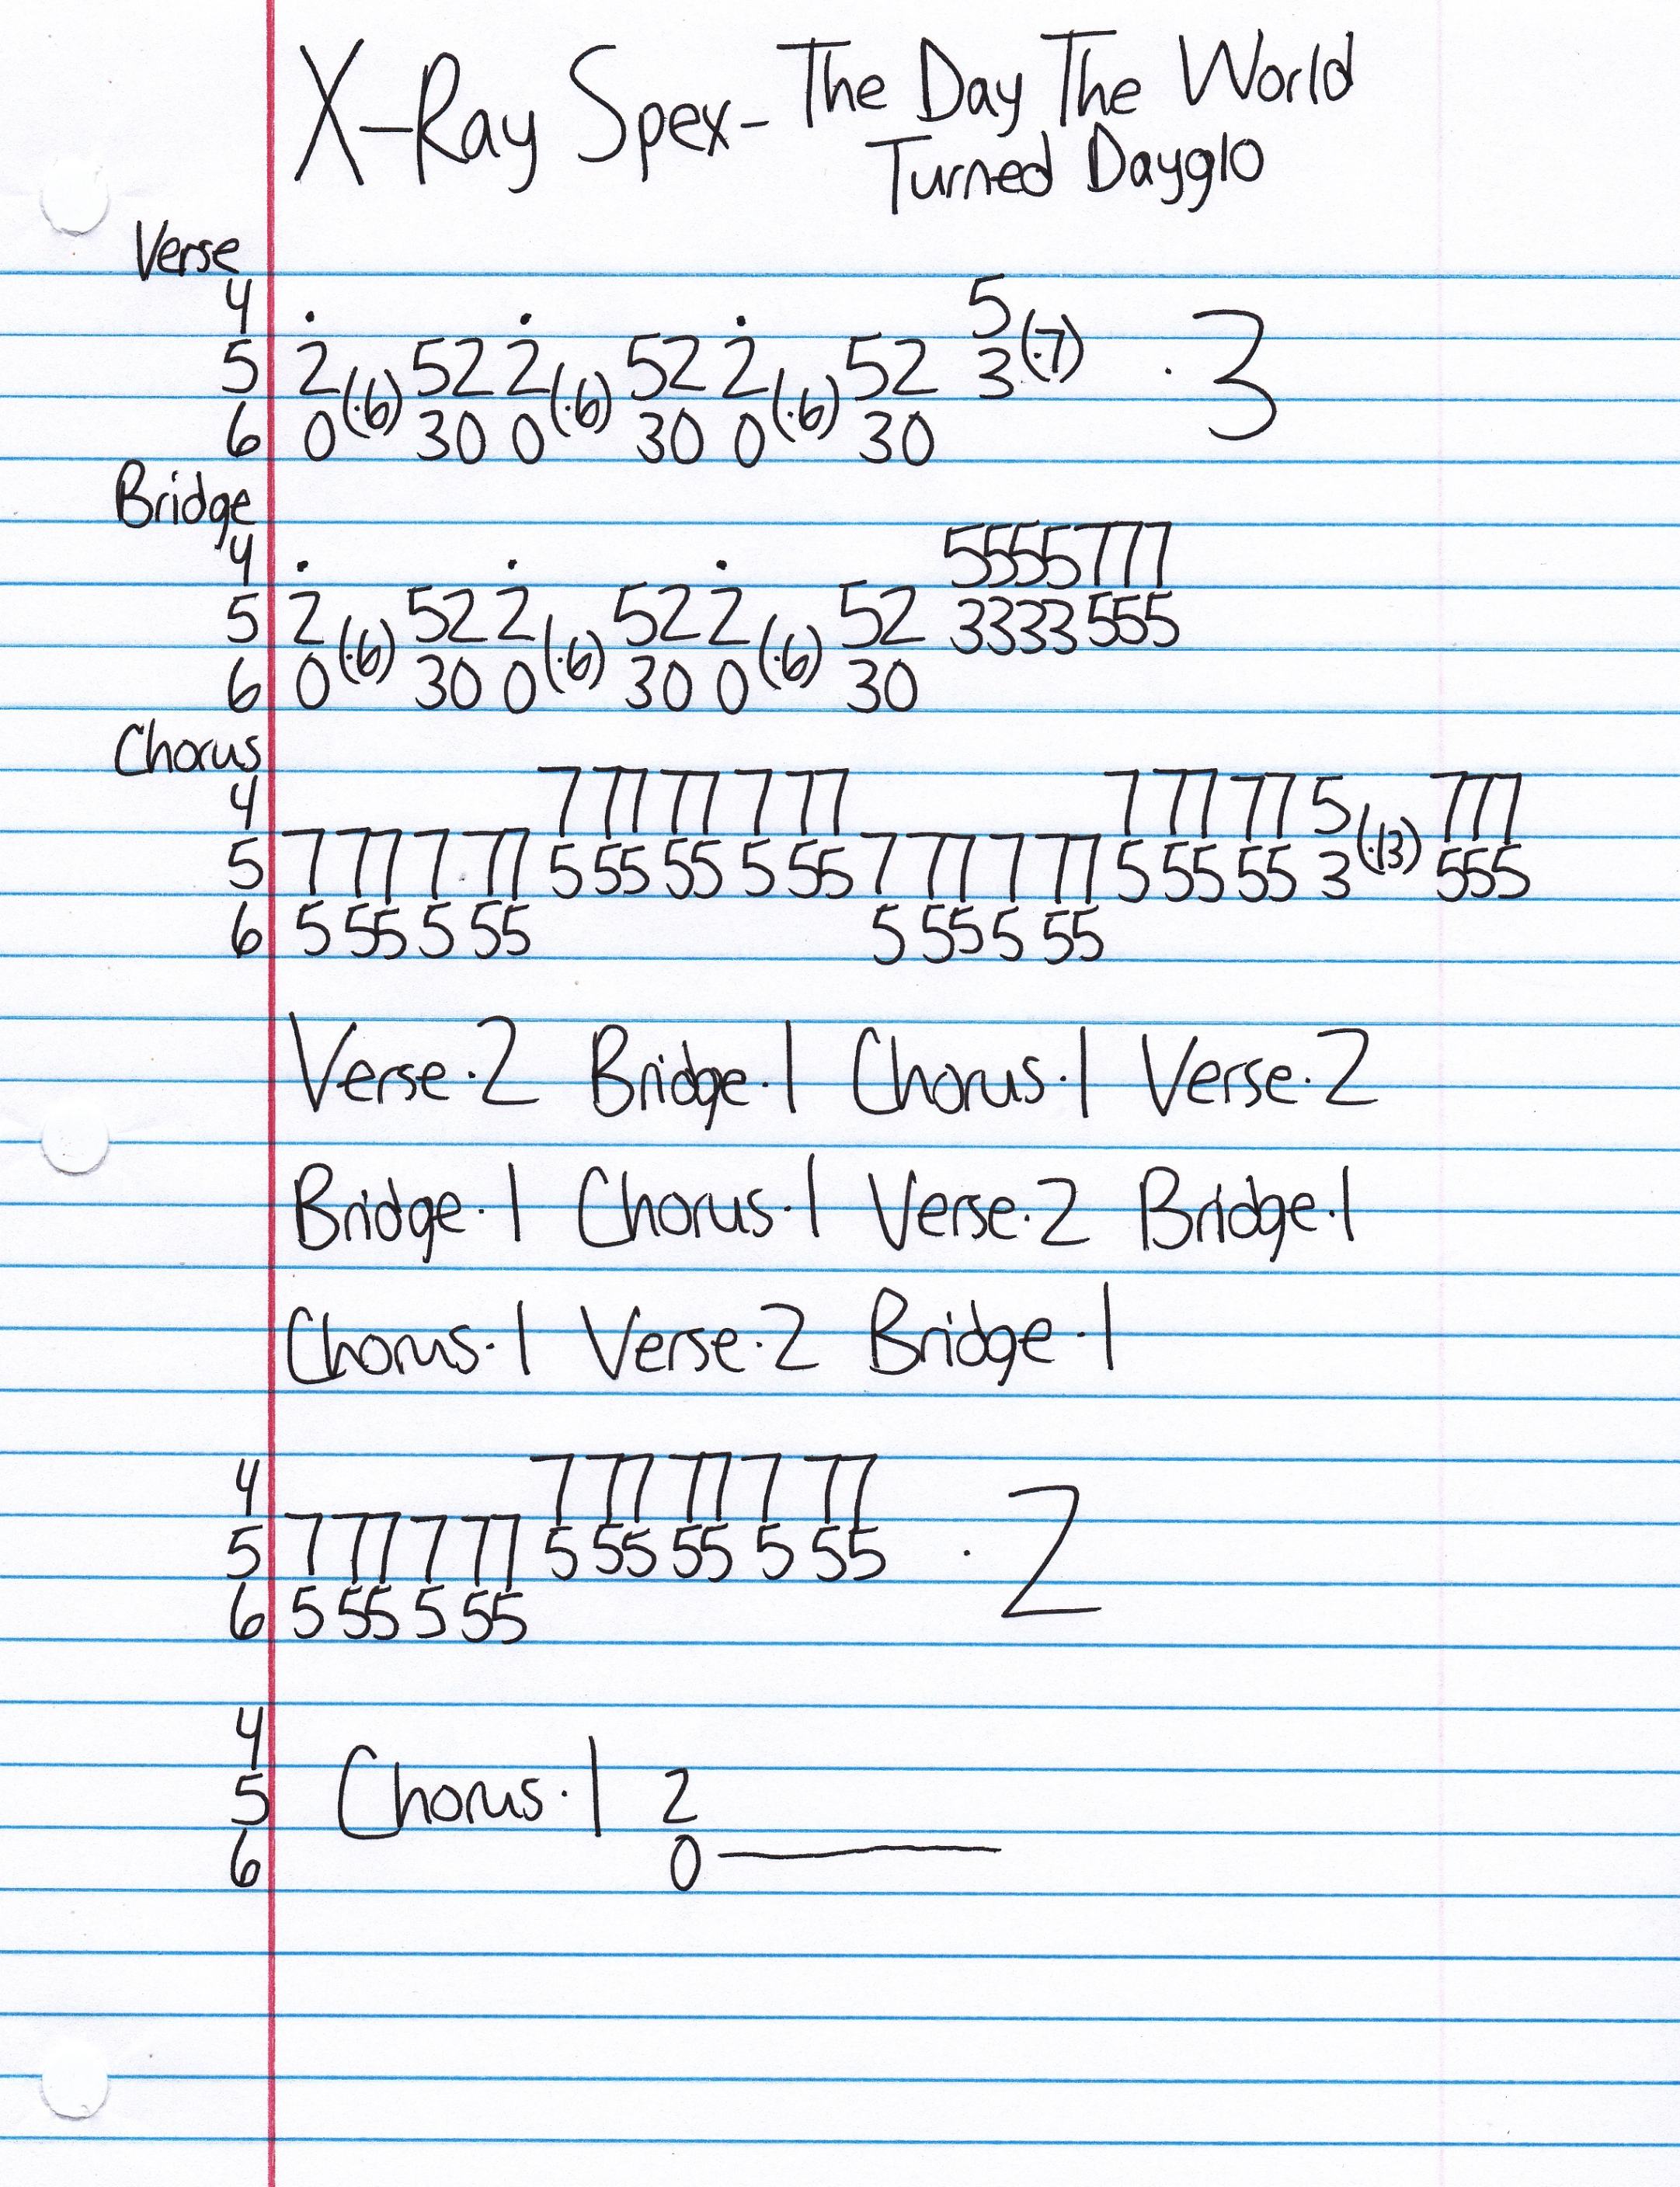 X-Ray Spex- The Day The World
Turned Dayglo
Verse
4 . . . 5
5 2 (·6) 52 2 (·6) 52 2 (·6) 52 3 (·7) ·3
6 0 30 0 30 0 30
Bridge
4 . . . 5555777
5 2 (·6) 52 2 (·6) 52 2 (·6) 52 3333555
6 0 30 0 30 0 30
Chorus
4 7 77 77 7 77 7 77 77 5 (·13) 777
5 7 77 7 77 5 55 55 5 55 7 77 7 77 5 55 55 3 555
6 5 55 5 55 5 55 5 55
Verse·2 Bridge·1 Chorus·1 Verse·2
Bridge·1 Chorus·1 Verse·2 Bridge·1
Chorus·1 Verse·2 Bridge·1
4 7 77 77 7 77
5 7 77 7 77 5 55 55 5 55 ·2
6 5 55 5 55
4
5 Chorus·1 2
6 0